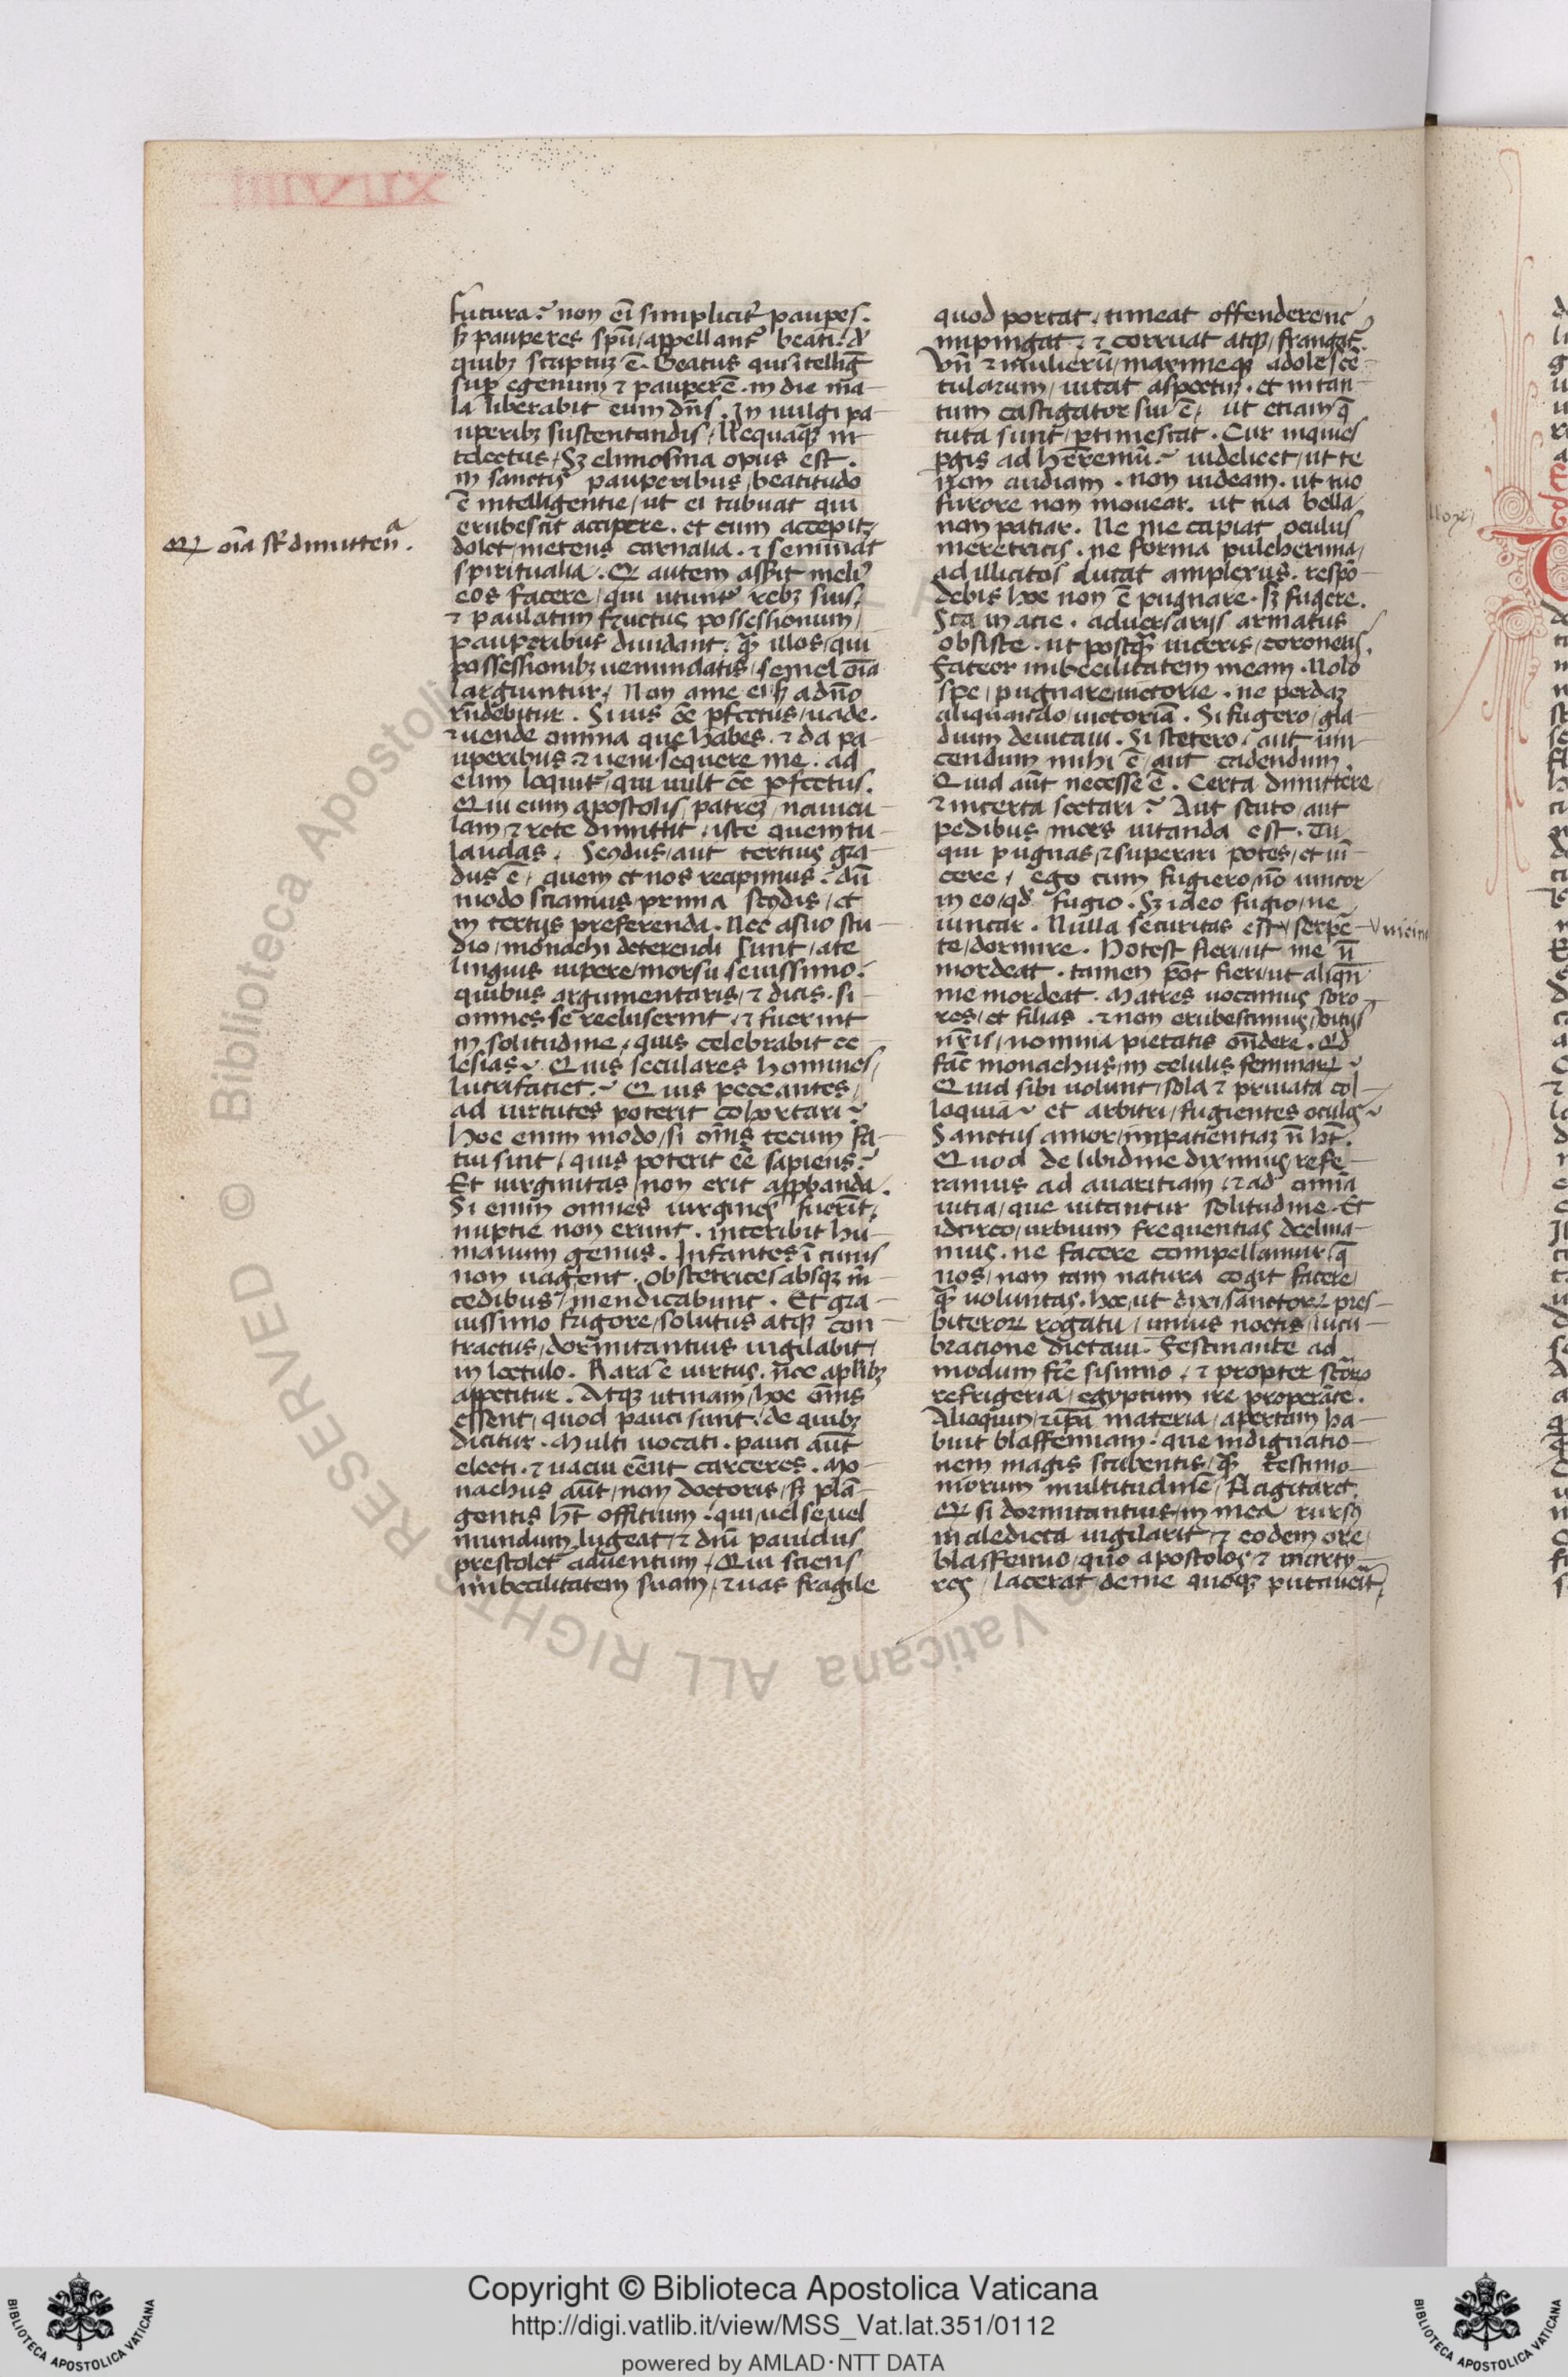 futura? non eī simplicit᷑ paupes.
ꝫ pauperes spū/appellant᷑ beati. d̛
quibꝫ scriptuꝫ ē. Beatus qui ītellig̅
suꝑ egenum ⁊ pauperē. in die ma-
la liberabit eum dn̄s. In uulgi pa-
uperibꝫ sustentandis/Nequaqꝫ in-
telectus/Sꝫ elimosina opus est.
in sanctis pauperibus/beatitudo
ē intelligentie/ut ei tribuat qui
erubescit accipere. et cum acceꝑit/
Qꝛ oīa sr̄ dimitten̄a.
dolet/metens carnalia. ⁊ seminat
spiritualia. Q autem asꝝit meli᷒
eos facere/qui utunt᷑ rebꝫ suis/
⁊ paulatim fructus possessionum/
pauperibus diuidant. qꝫ illos/qui
possessionibꝫ uenundatis/semel oīa
largiuntur/ Non ame ei ꝫ adn̄o
rn̄debitur. Si uis ēē ꝑfectus/uade.
⁊ uende omnia que habes. ⁊ da pa-
uperibus ⁊ ueni sequere me. ad
eum loquit᷑/qui uult ēē ꝑfectus.
Qui cum apostolis/patreꝫ/nauicu-
lam/⁊ rete dimittit. iste quem tu
laudas. Scd̄us/aut tertius gra-
dus ē/ quem et nos recipimus. dū
modo sciamus/prima scd̄is/et
in tertijs preferenda. Nec a suo stu-
dio/monachi deterendi sunt/a te
linguis uipere/morsu seuissimo.
quibus argumentaris/⁊ dicis. si
omnes se recluserint/⁊ fuerint
in solitudine/quis celebrabit ec-
lesias? Quis seculares homines/
lucrifaciet? Quis peccantes/
ad uirtutes poterit cohortari?
Hoc enim modo/si om̄s tecum fa-
tui sint/quis poterit ēē sapiens?
Et uirginitas/non erit approbanda.
Si enim omnes uirgines fuerīt/
nuptie non erunt. interibit hu-
manum genus. Infantes ī cunis
non uagient. obstetrices absqꝫ m̄-
cedibus/mendicabunt. Et gra-
uissimo frigore/solutus atqꝫ con-
tractus/dormitantius uigilabit/
in lectulo. Rara ē uirtus. nec a plībꝫ
appetitur. Atqꝫ utinam/hoc om̄s
essent/quod pauci sunt. de quibꝫ
dicitur. Multi uocati. pauci aūt
electi. ⁊ uacui eēnt carceres. Mo-
nachus aūt/non doctoris/ꝫ plā-
gentis hт̄ offitium. qui/uel se/uel
mundum lugeat/⁊ dnī pauidus
prestolet᷑ aduentum. Qui sciens
imbecilitatem suam/⁊ uas fragile
quod portat. timeat offendere/nc̄
impingat. ⁊ corruat atqꝫ/frangat᷑.
Vn̄ ⁊ mulierū/maximeqꝫ adolescē-
tularum/uitat aspectuꝫ. et in tan-
tum castigator sui ē/ ut etiam q̄
tuta sunt/ꝑtimescat. Cur inquies
ꝑgis ad herēmū? uidelicet/ut te
non audiam. non uideam. ut tuo
furore non mouear. ut tua bella/
non patiar. Ne me capiat oculus
meretricis. ne forma pulcherima/
ad illicitos ducat amplexus. respō-
debis hoc non ē pugnare. sꝫ fugere.
Sta in acie. aduersarijs armatus
obsiste. ut postqꝫ uiceris/coroneris.
fateor imbecilitatem meam. Nolo
spe/pugnare/uictorie. ne perdaꝫ
aliquando/uictoriā. Si fugero/gla-
dium deuitaui. Si stetero/aut uin-
cendum mihi ē/aut cadendum.
Quid aūt necesse ē. Certa dimittere
⁊ incerta sectari? Aut scuto/aut
pedibus/mors uitanda est. Tu
qui pugnas/⁊ superari potes/et uī-
cere/ ego cum fugiero/nō uincor
in eo/qd̛ fugio. Sꝫ ideo fugio/ne
uincar. Nulla securitas est/serpē-
te/dormire. Potest fieri/ut me n̄
mordeat. tamen pōt fieri/ut aliqn̄
me mordeat. Matres uocamus soro-
res/et filias. ⁊ non erubescimus/uitijs
nr̄is/nomina pietatis on̄dere. Qd
fac̄ monachus/in celulis feminaꝝ?
Quid sibi uolunt/sola ⁊ priuata col-
loquia? et arbitri/fugientes oculos?
Sanctus amor/impatientiaꝫ n̄ hт̄.
Quod de libidine diximus/refe-
ramus ad auaritiam/⁊ ad omnia
uitia/que uitantur solitudine. Et
idcirco/urbium frequentias declina-
mus. ne facere compellamur/q̄
nos/non tam natura cogit facere/
qꝫ uoluntas. hoc/ut dixi/sanctoꝝ pres-
biteroꝝ rogatu/unius noctis/lucu-
bracione dictaui. Festinante ad
modum fr̄e sisinnio/⁊ propter sc̄tōꝝ
refrigeria/egyptum ire properāte.
Alioquin/⁊ ip̄a materia/apertam ha-
buit blasfemiam. que indignatio-
nem magis scribentis/qꝫ testimo-
niorum multitudinē/flagitaret.
Qꝛ si dormitantius/in mea rursꝫ
maledicta uigilarit/⁊ eodem ore
blasfemio/quo apostolos ⁊ marty-
res/lacerat/de me quoqꝫ putauerīt/
Copyright © Biblioteca Apostolica Vaticana
http://digi.vatlib.it/view/MSS_Vat.lat.351/0112
powered by AMLAD·NTT DATA
BIBLIOTECA APOSTOLICA VATICANA
BIBLIOTECA APOSTOLICA VATICANA
© Biblioteca Apostolica Vaticana ALL RIGHTS RESERVED